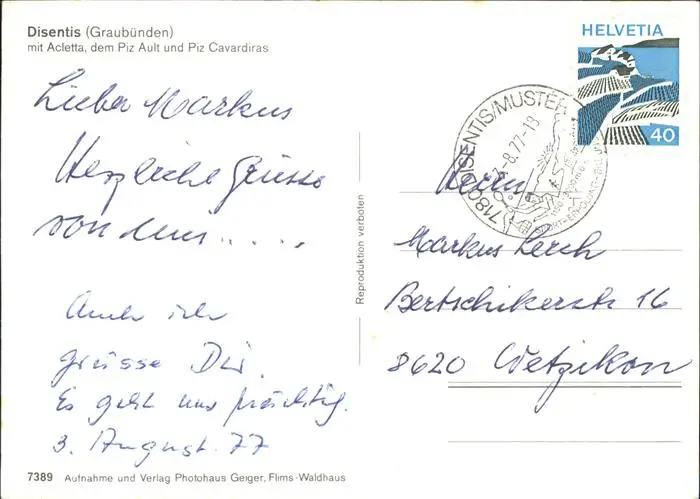 Disentis (Graubünden)
mit Acletta, dem Piz Ault und Piz Cavardiras
Lieber Markus
Herzliche Grüsse
von
Auch ich
grüsse Dir.
Es geht uns prächtig.
3. August 77
7389 Aufnahme und Verlag Photohaus Geiger, Flims-Waldhaus
Reproduktion verboten
HELVETIA
40
7180 DISENTIS/MUSTER
-8.77-18
Herrn
Markus Lerch
Bertschikerstr. 16
8620 Wetzikon